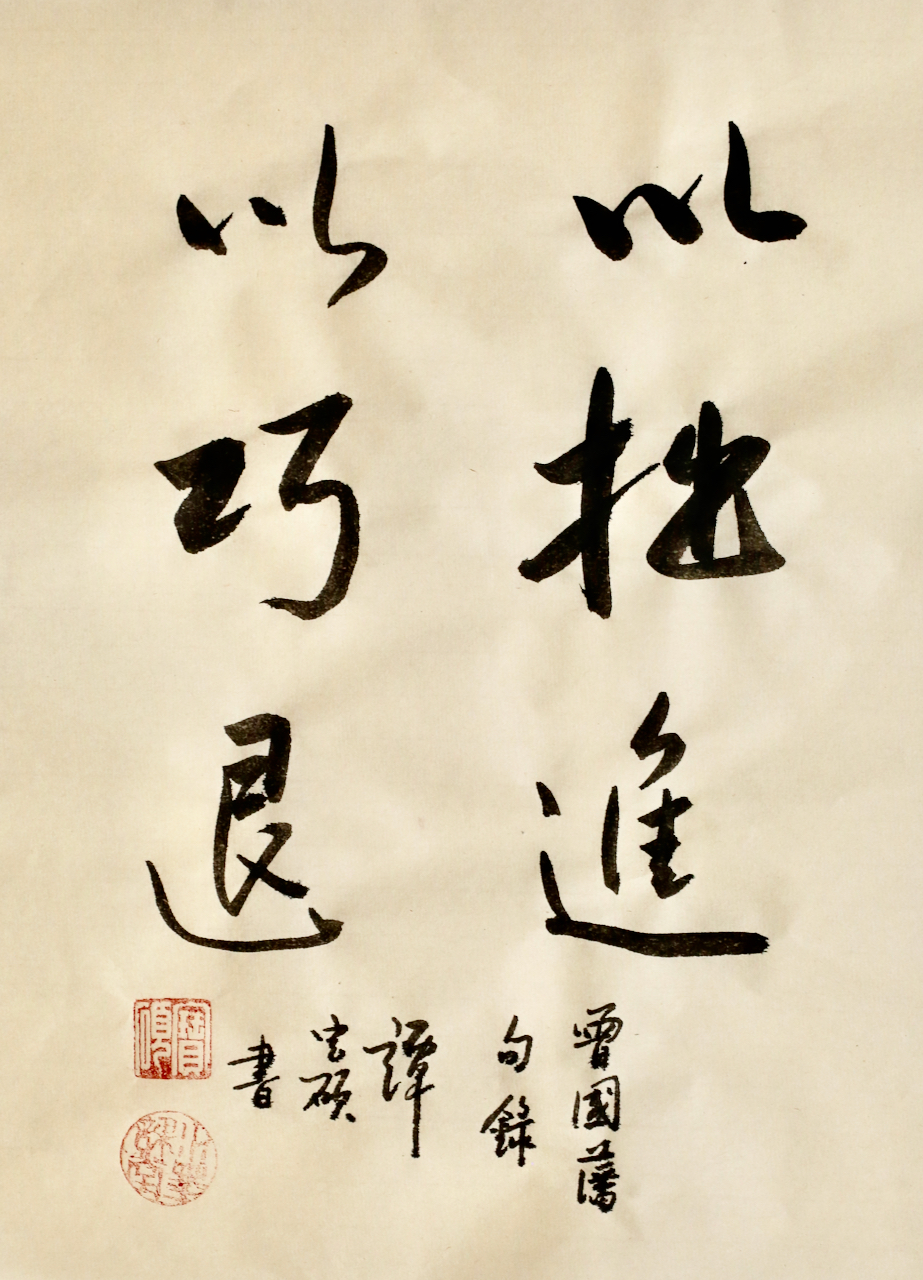 以拙進
以巧退
曾國藩
句錄
譚
碩
書